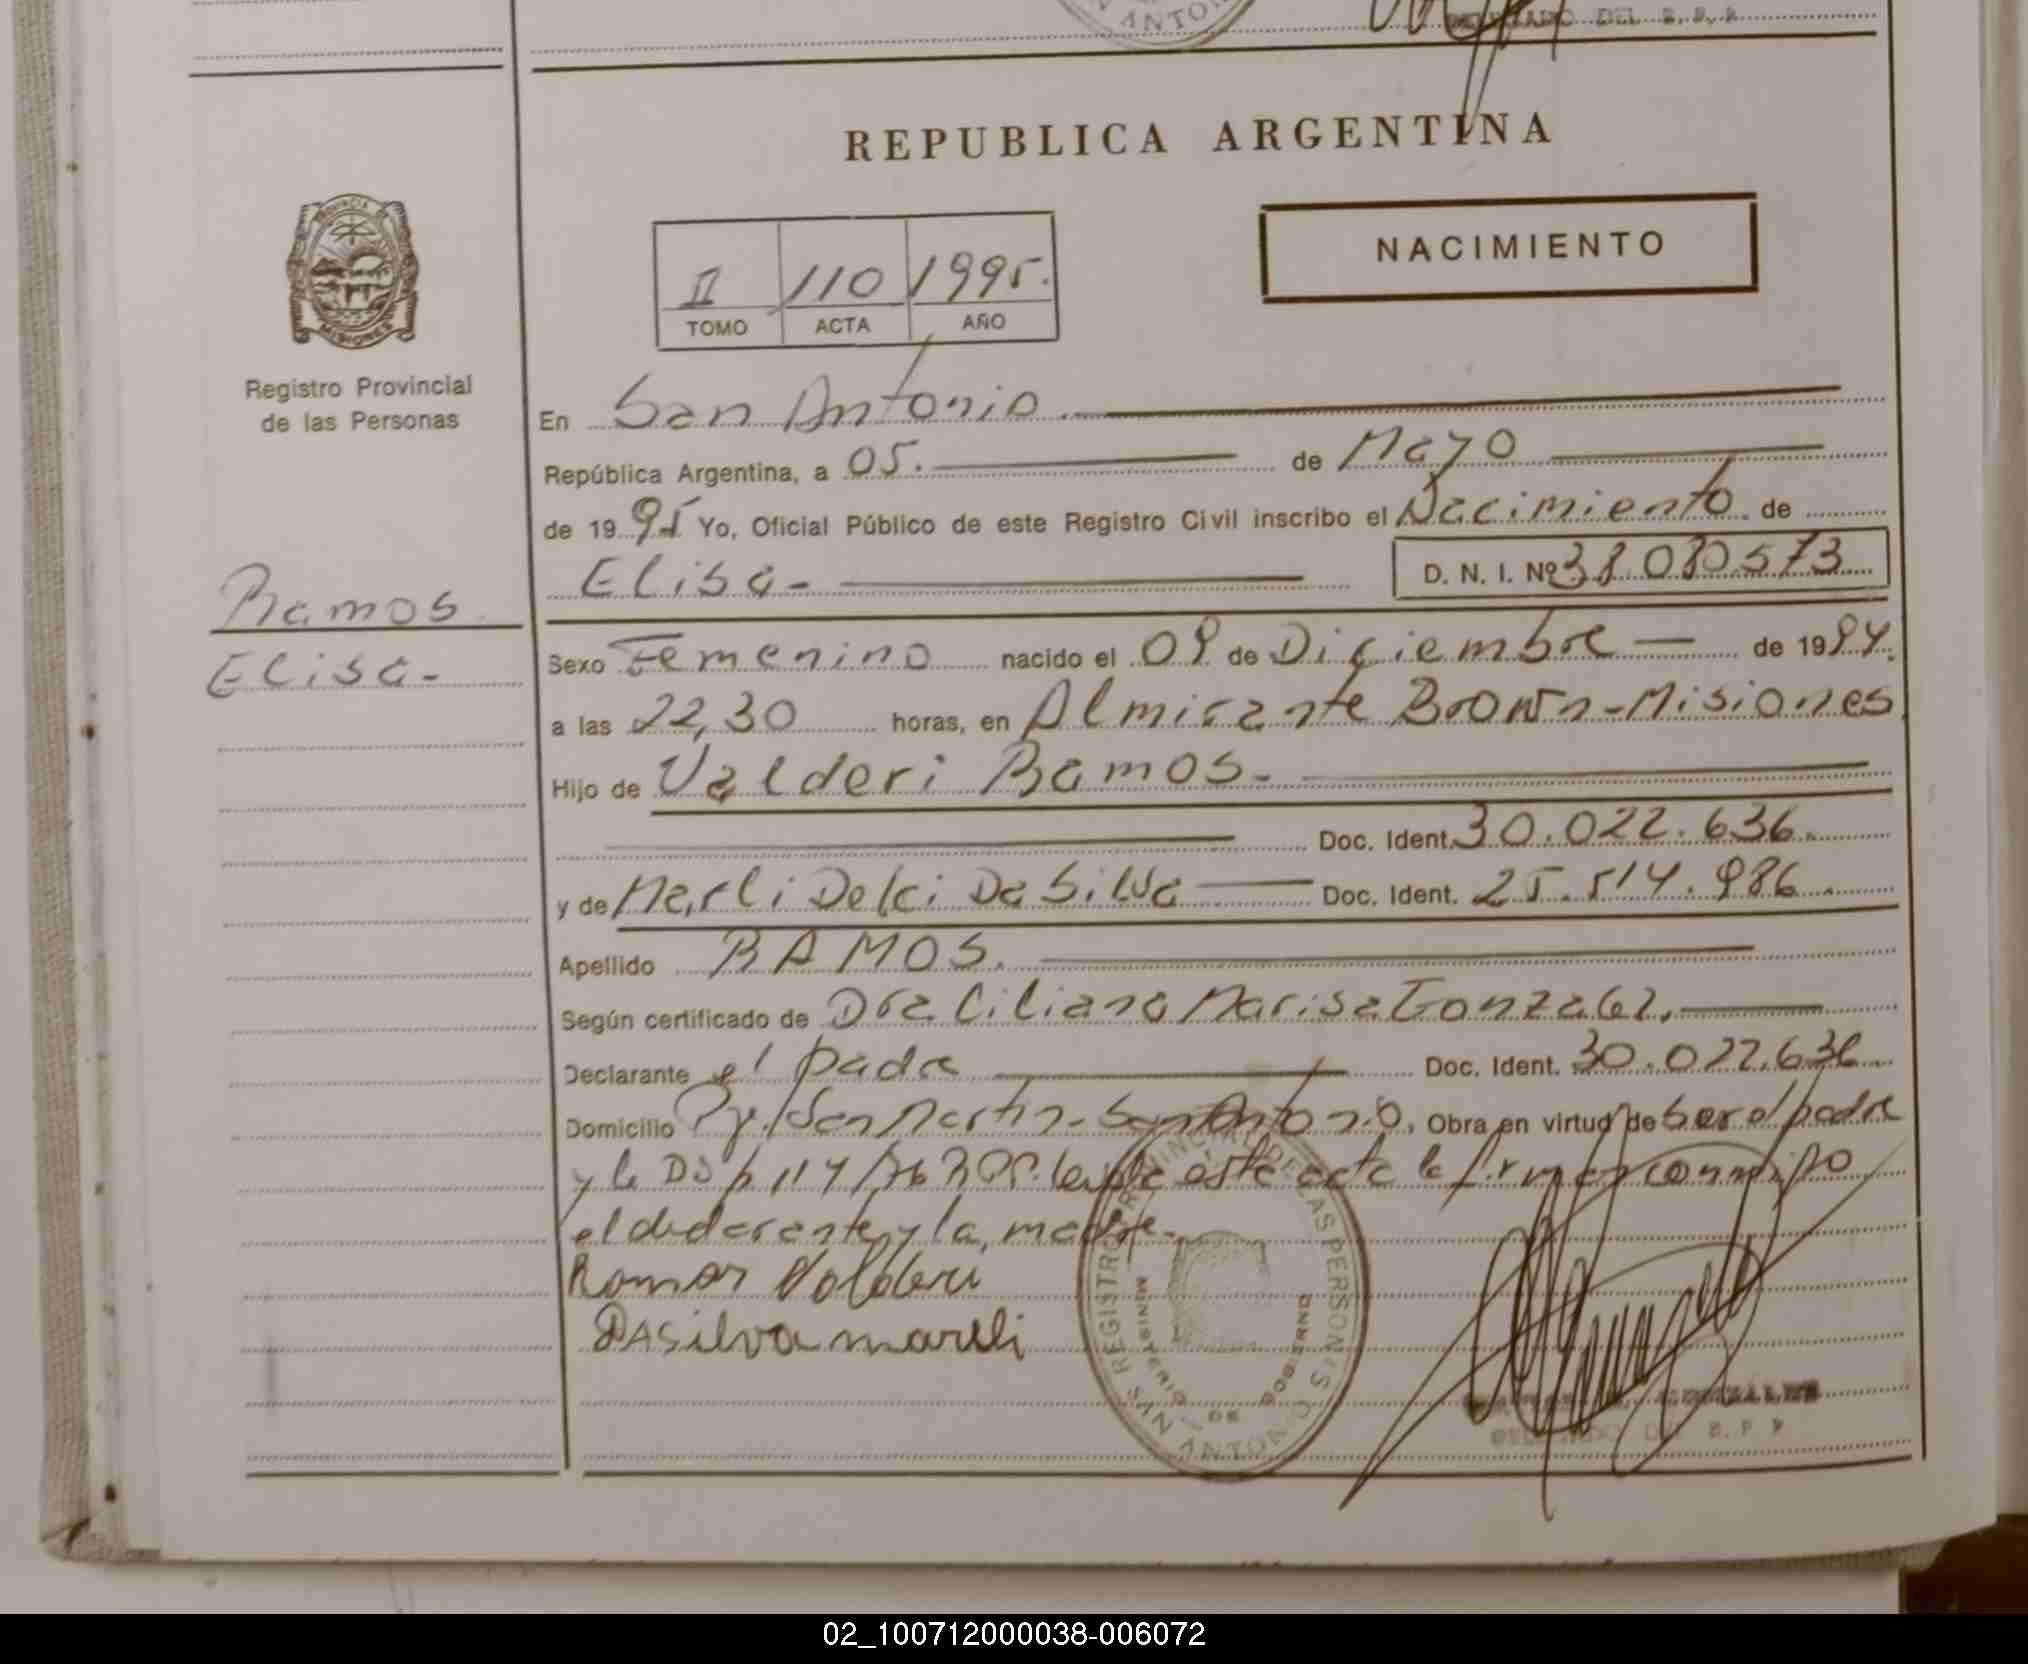 DEL R.P.P
REPUBLICA ARGENTINA
PROVINCIA DE
MISIONES
Registro Provincial
de las Personas
II 110 1995.
TOMO ACTA AÑO
NACIMIENTO
En San Antonio.
República Argentina, a 05. de Mayo
de 1995 Yo, Oficial Público de este Registro Civil inscribo el Nacimiento de
Elisa- D. N. I. Nº 38.080.573
Ramos
Elisa-
Sexo Femenino nacido el 09 de Diciembre de 1994.
a las 22,30 horas, en Almirante Brown-Misiones
Hijo de Valderi Ramos-
Doc. Ident. 30.022.636.
y de Marli Delci Da Silva Doc. Ident. 25.514.986.
Apellido RAMOS.
Según certificado de Dra Liliana Marisa Gonzalez.
Declarante el padre Doc. Ident. 30.022.636
Domicilio Pje. San Martin-San Antonio, Obra en virtud de ser el padre
y la esta acta la firman conmigo
el declarante y la madre-
Ramos Valderi
Dasilva marli
REGISTRO PROVINCIAL DE LAS PERSONAS
MINISTERIO DE GOBIERNO
SAN ANTONIO
R.P.P
02_100712000038-006072